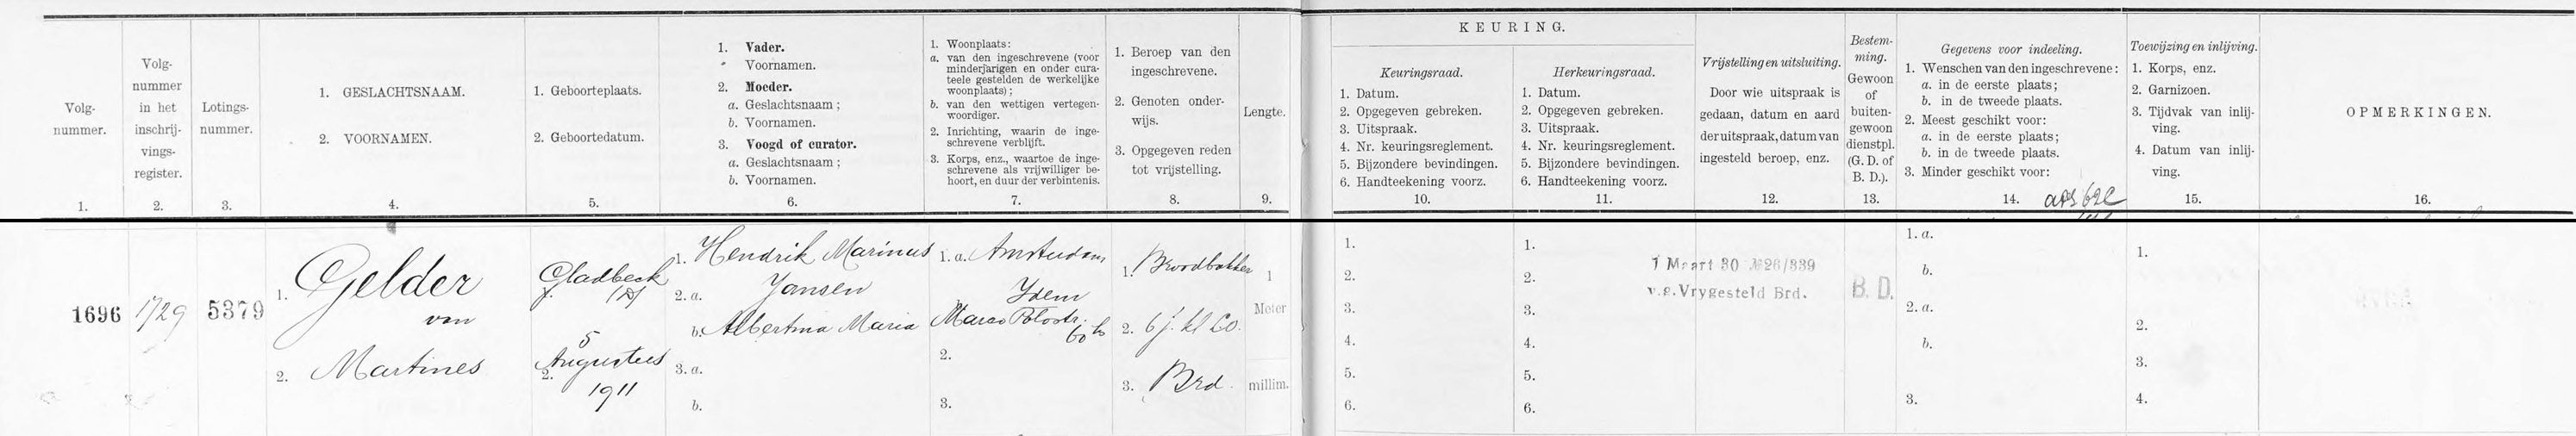 Volg-
nummer.
1.
Volg-
nummer
in het
inschrij-
vings-
register.
2.
Lotings-
nummer.
3.
1. GESLACHTSNAAM.
2. VOORNAMEN.
4.
1. Geboorteplaats.
2. Geboortedatum.
5.
1. Vader.
" Voornamen.
2. Moeder.
a. Geslachtsnaam;
b. Voornamen.
3. Voogd of curator.
a. Geslachtsnaam;
b. Voornamen.
6.
1. Woonplaats:
a. van den ingeschrevene (voor
minderjarigen en onder cura-
teele gestelden de werkelijke
woonplaats);
b. van den wettigen vertegen-
woordiger.
2. Inrichting, waarin de inge-
schrevene verblijft.
3. Korps, enz., waartoe de inge-
schrevene als vrijwilliger be-
hoort, en duur der verbintenis.
7.
1. Beroep van den
ingeschrevene.
2. Genoten onder-
wijs.
3. Opgegeven reden
tot vrijstelling.
8.
Lengte.
9.
KEURING.
Keuringsraad.
1. Datum.
2. Opgegeven gebreken.
3. Uitspraak.
4. Nr. keuringsreglement.
5. Bijzondere bevindingen.
6. Handteekening voorz.
10.
Herkeuringsraad.
1. Datum.
2. Opgegeven gebreken.
3. Uitspraak.
4. Nr. keuringsreglement.
5. Bijzondere bevindingen.
6. Handteekening voorz.
11.
Vrijstelling en uitsluiting.
Door wie uitspraak is
gedaan, datum en aard
der uitspraak, datum van
ingesteld beroep, enz.
12.
Bestem-
ming.
Gewoon
of
buiten-
gewoon
dienstpl.
(G. D. of
B. D.).
13.
Gegevens voor indeeling.
1. Wenschen van den ingeschrevene:
a. in de eerste plaats;
b. in de tweede plaats.
2. Meest geschikt voor:
a. in de eerste plaats;
b. in de tweede plaats.
3. Minder geschikt voor:
14.
Toewijzing en inlijving.
1. Korps, enz.
2. Garnizoen.
3. Tijdvak van inlij-
ving.
4. Datum van inlij-
ving.
15.
OPMERKINGEN.
16.
1696
1729
5379
1. Gelder
van
2. Martines
Gladbeck
1. (D)
5
2. Augustus
1911
1. Hendrik Marinus
2. a. Jansen
b. Albertina Maria
3. a.
b.
1. a. Amsterdam
Idem
Marco Polostr.
60 hs
2.
3.
1. Broodbakker
2. 6 j. kl LO.
3. Brd.
1
Meter
millim.
1.
2.
3.
4.
5.
6.
1.
2.
3.
4.
5.
6.
1 Maart 30 № 26/339
v.g. Vrygesteld Brd.
B. D.
1. a.
b.
2. a.
b.
3.
1.
2.
3.
4.